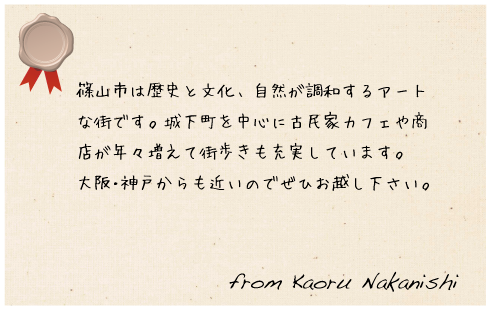 篠山市は歴史と文化、自然が調和するアート
な街です。城下町を中心に古民家カフェや商
店が年々増えて街歩きも充実しています。
大阪・神戸からも近いのでぜひお越し下さい。
from Kaoru Nakanishi